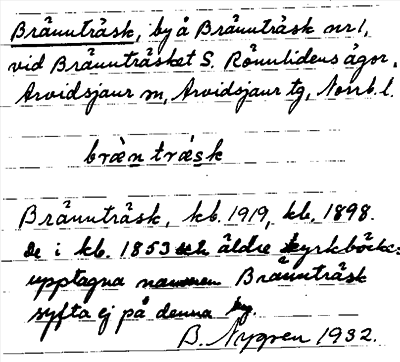 Brännträsk, by å Brännträsk nr 1,
vid Brännträsket S. Rönnlidens ägor,
Arvidsjaur sn, Arvidsjaur tg, Norrb. l.
bræ̀n træ̀sk
Brännträsk, kb. 1919, kb. 1898.
De i kb. 1853 och äldre kyrkböcker
upptagna namnen Brännträsk
syfta ej på denna by.
B. Nygren 1932.